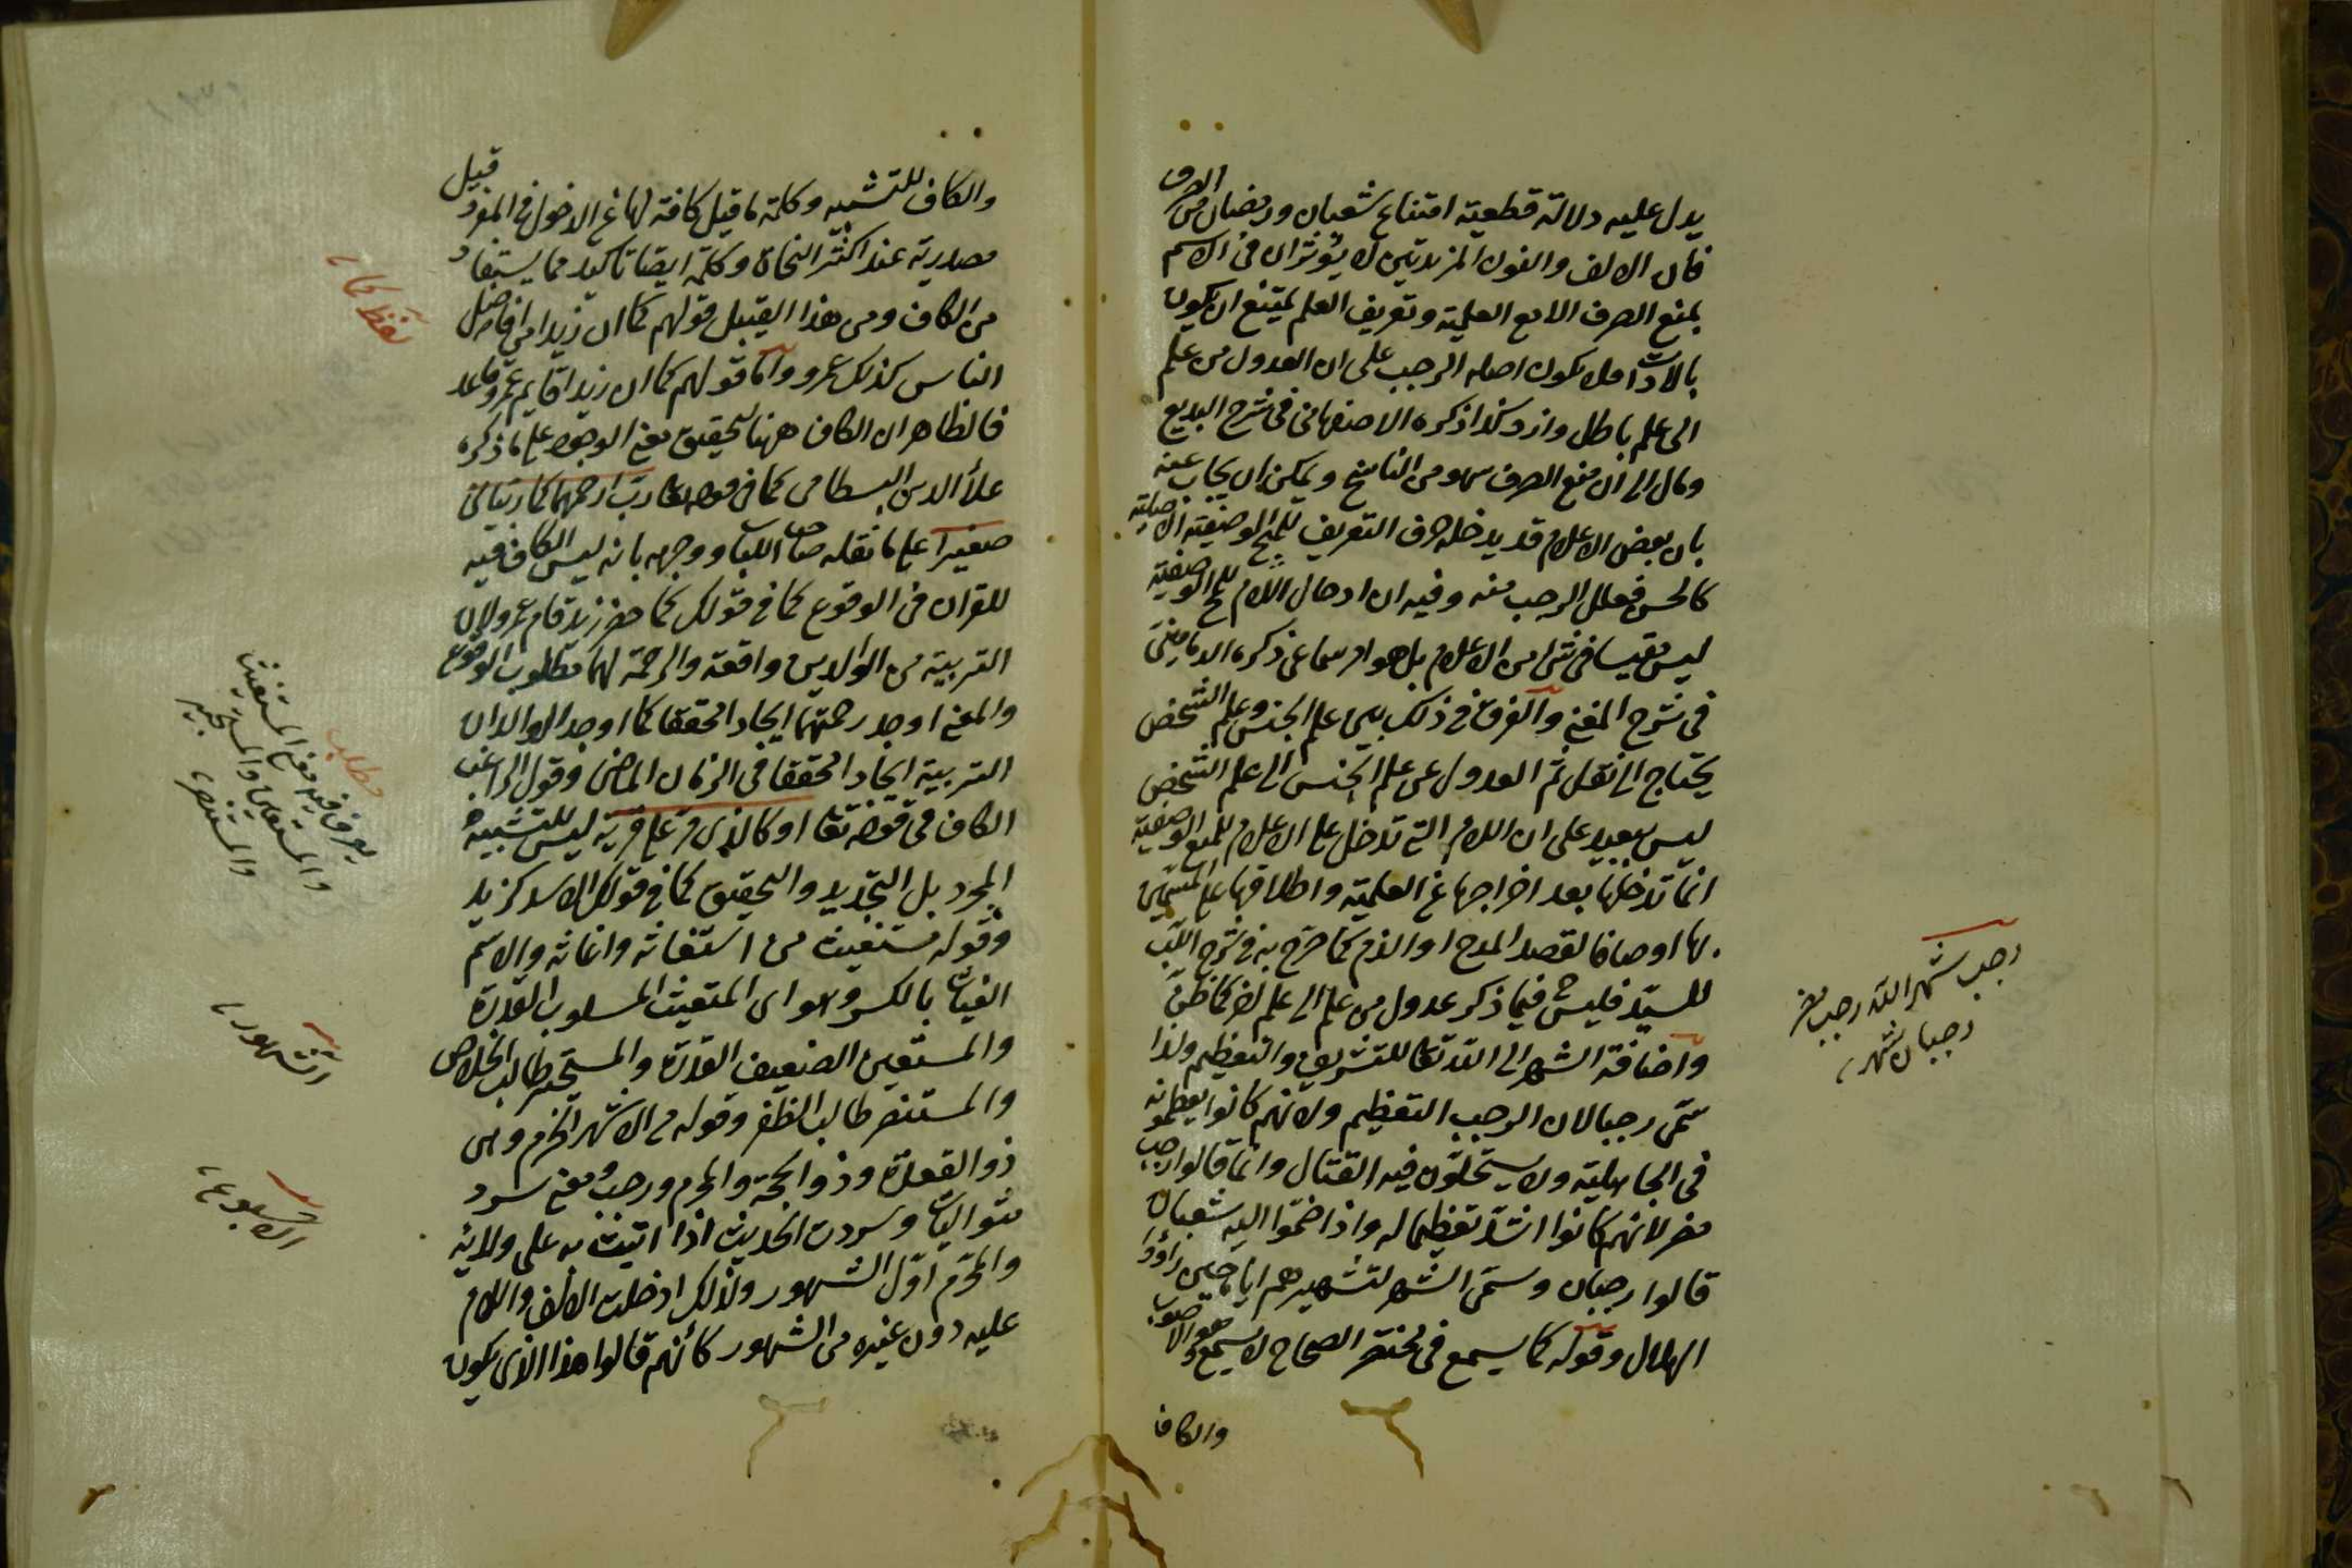 يدل عليه دلالة قطعية امتناع شعبان ورمضان من الصرف
فان الالف والنون المزيدتين لا يؤثران في الاسم
بمنع الصرف الا مع العلمية وتعريف العلم يمتنع ان يكون
بالادات اصله الرجب على ان العدول من علم
الى علم باطل كذا ذكره الاصفهاني في شرح البديع
ومال الى ان منع الصرف سهو من الناسخ ويمكن ان يجاب عنه
بان بعض الاعلام قد يدخله حرف التعريف للمح الوصفية الاصلية
كالحسن فعلل الرجب منه وفيه ان ادخال اللام للمح الوصفية
ليس مقيسا في شئ من الاعلام بل هو امر سماعي ذكره الدماميني
في شرح المغني والفرق في ذلك بين علم الجنس وعلم الشخص
يحتاج الى نقل ثم العدول عن علم الجنس الى علم الشخص
ليس ببعيد على ان اللام التي تدخل على الاعلام للمح الوصفية
انما تدخلها بعد اخراجها عن العلمية واطلاقها على المسمين
بها اوصافا لقصد المدح او الذم كما صرح به في شرح اللب
للسيد فليس فيما ذكر عدول من علم الى علم اخر كما ظن
واضافة الشهر الى الله تعا للتشريف والتعظيم ولذا
سمى رجبا لان الرجب التعظيم ولانهم كانوا يعظمونه
في الجاهلية ولا يستحلون فيه القتال وانما قالوا رجب
مضر لانهم كانوا اشد تعظيما له واذا ضموا اليه شعبان
قالوا رجبان وسمى الشهر لتشهيرهم اياه حين راؤا
الهلال وقوله كما يسمع في مختصر الصحاح لا يسمع هو الاصوب
والكاف
رجب شهر الله رجب مضر
رجبان شهر
والكاف للتشبيه وكلمة ما قيل كافة لها عن الدخول في المفرد وقيل
مصدرية عند اكثر النحاة وكلمة ايضا تاكيد مما يستفاد
من الكاف ومن هذا القبيل قولهم كما ان زيدا من افاضل
الناس كذلك عمرو واما قولهم كما ان زيدا قايم عمرو قاعد
فالظاهر ان الكاف ههنا لتحقيق معنى الوجود على ما ذكره
علاء الدين البسطامي كما في قوله تعا رب ارحمهما كما ربياني
صغيرا على ما نقله صاحب اللباب ووجهه بانه ليس الكاف فيه
للقران في الوقوع كما في قولك كما حضر زيد قام عمرو لان
التربية من الوالدين واقعة والرحمة لهما مطلوب الوقوع
والمعنى اوجد رحمتهما ايجادا محققا كما اوجد الوالدان
التربية ايجادا محققا في الزمان الماضي وقول الراغب
الكاف في قوله تعا او كالذي مر على قرية ليس للتشبيه
المجرد بل التجديد والتحقيق كما في قولك الاسد كزيد
وقوله مستغيث من استغاثه واغاثه والاسم
الغياث بالكسر وهو اى المتغيث المسلوب القدرة
والمستعين الضعيف القدرة والمستجير طالب الخلاص
والمستنصر طالب الظفر وقوله من الاشهر الحرم وهي
ذو القعدة وذو الحجة والمحرم ورجب ومعنى سرد
متواليات وسردت الحديث اذا اتيت به على ولائه
والمحرم اول الشهور ولذلك ادخلت الالف واللام
عليه دون غيره من الشهور كأنهم قالوا هذا الذي يكون
لفظ كما
مطلب
يعرف فيه معنى المستغيث
والمستعين والمستجير
والمستنصر
الشهور
الاسبوع